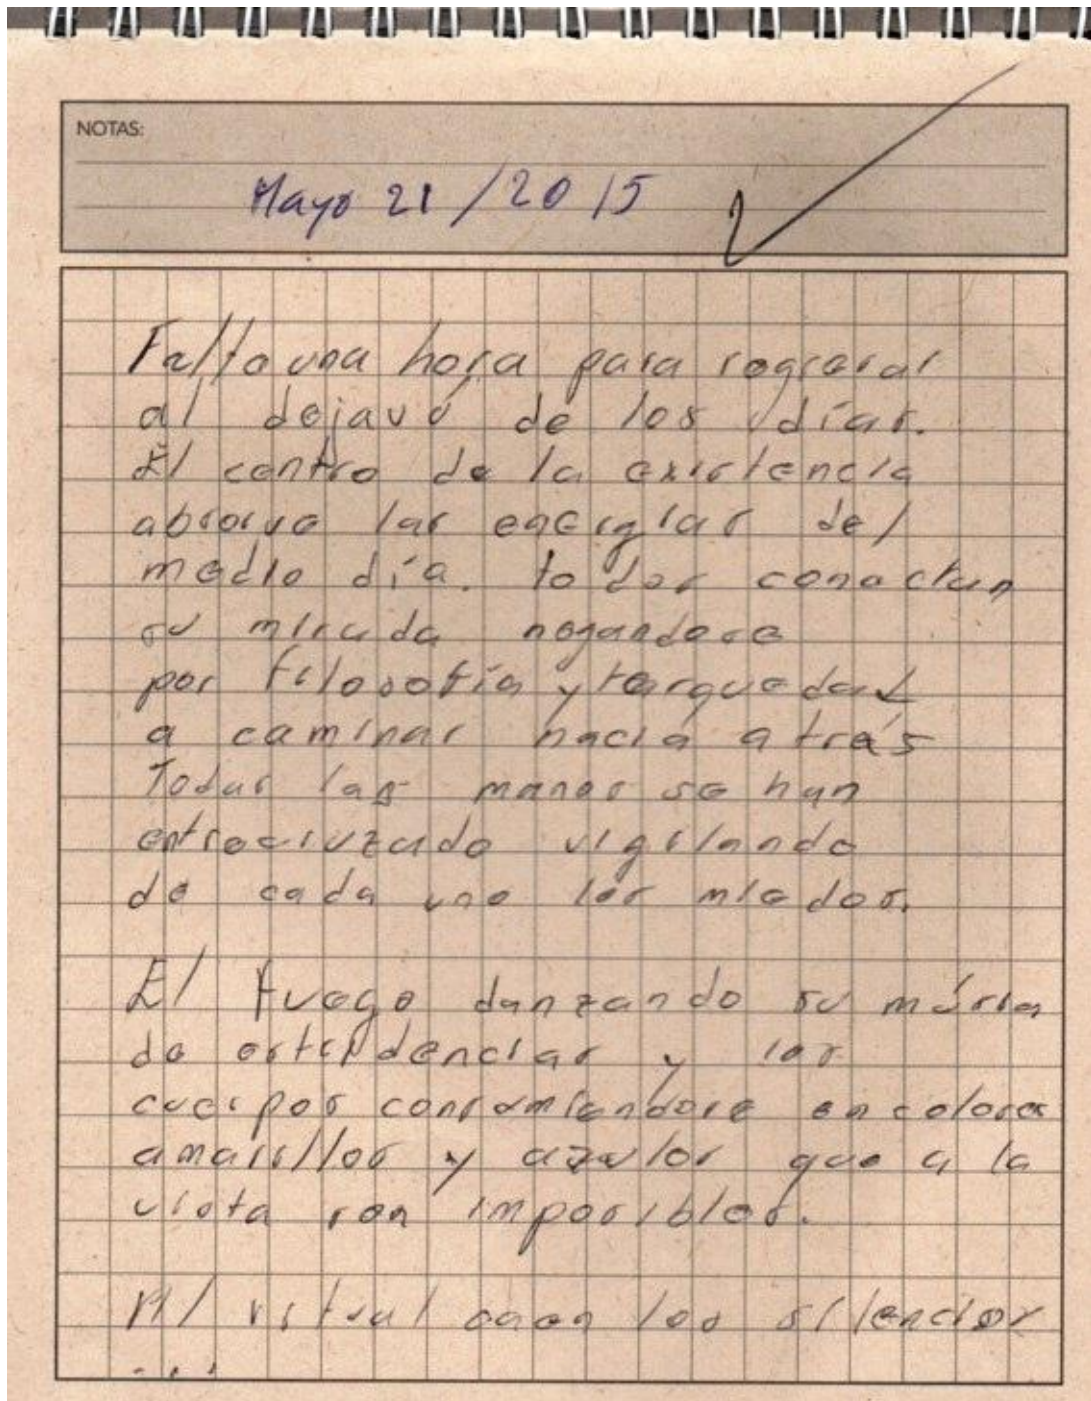 NOTAS:
Mayo 21 / 2015
Falta una hora para regresar
al dejavú de los días.
El centro de la existencia
absorve las energías del
medio día. todos conectan
su mirada negandose
por filosofía y terquedad
a caminar hacia atrás
Todas las manos se han
entrecruzado vigilando
de cada uno los miedos.
El fuego danzando su música
de estridencias y los
cuerpos consumiendose en colores
amarillos y azules que a la
vista son imposibles.
Al ritual caen los silencios
...